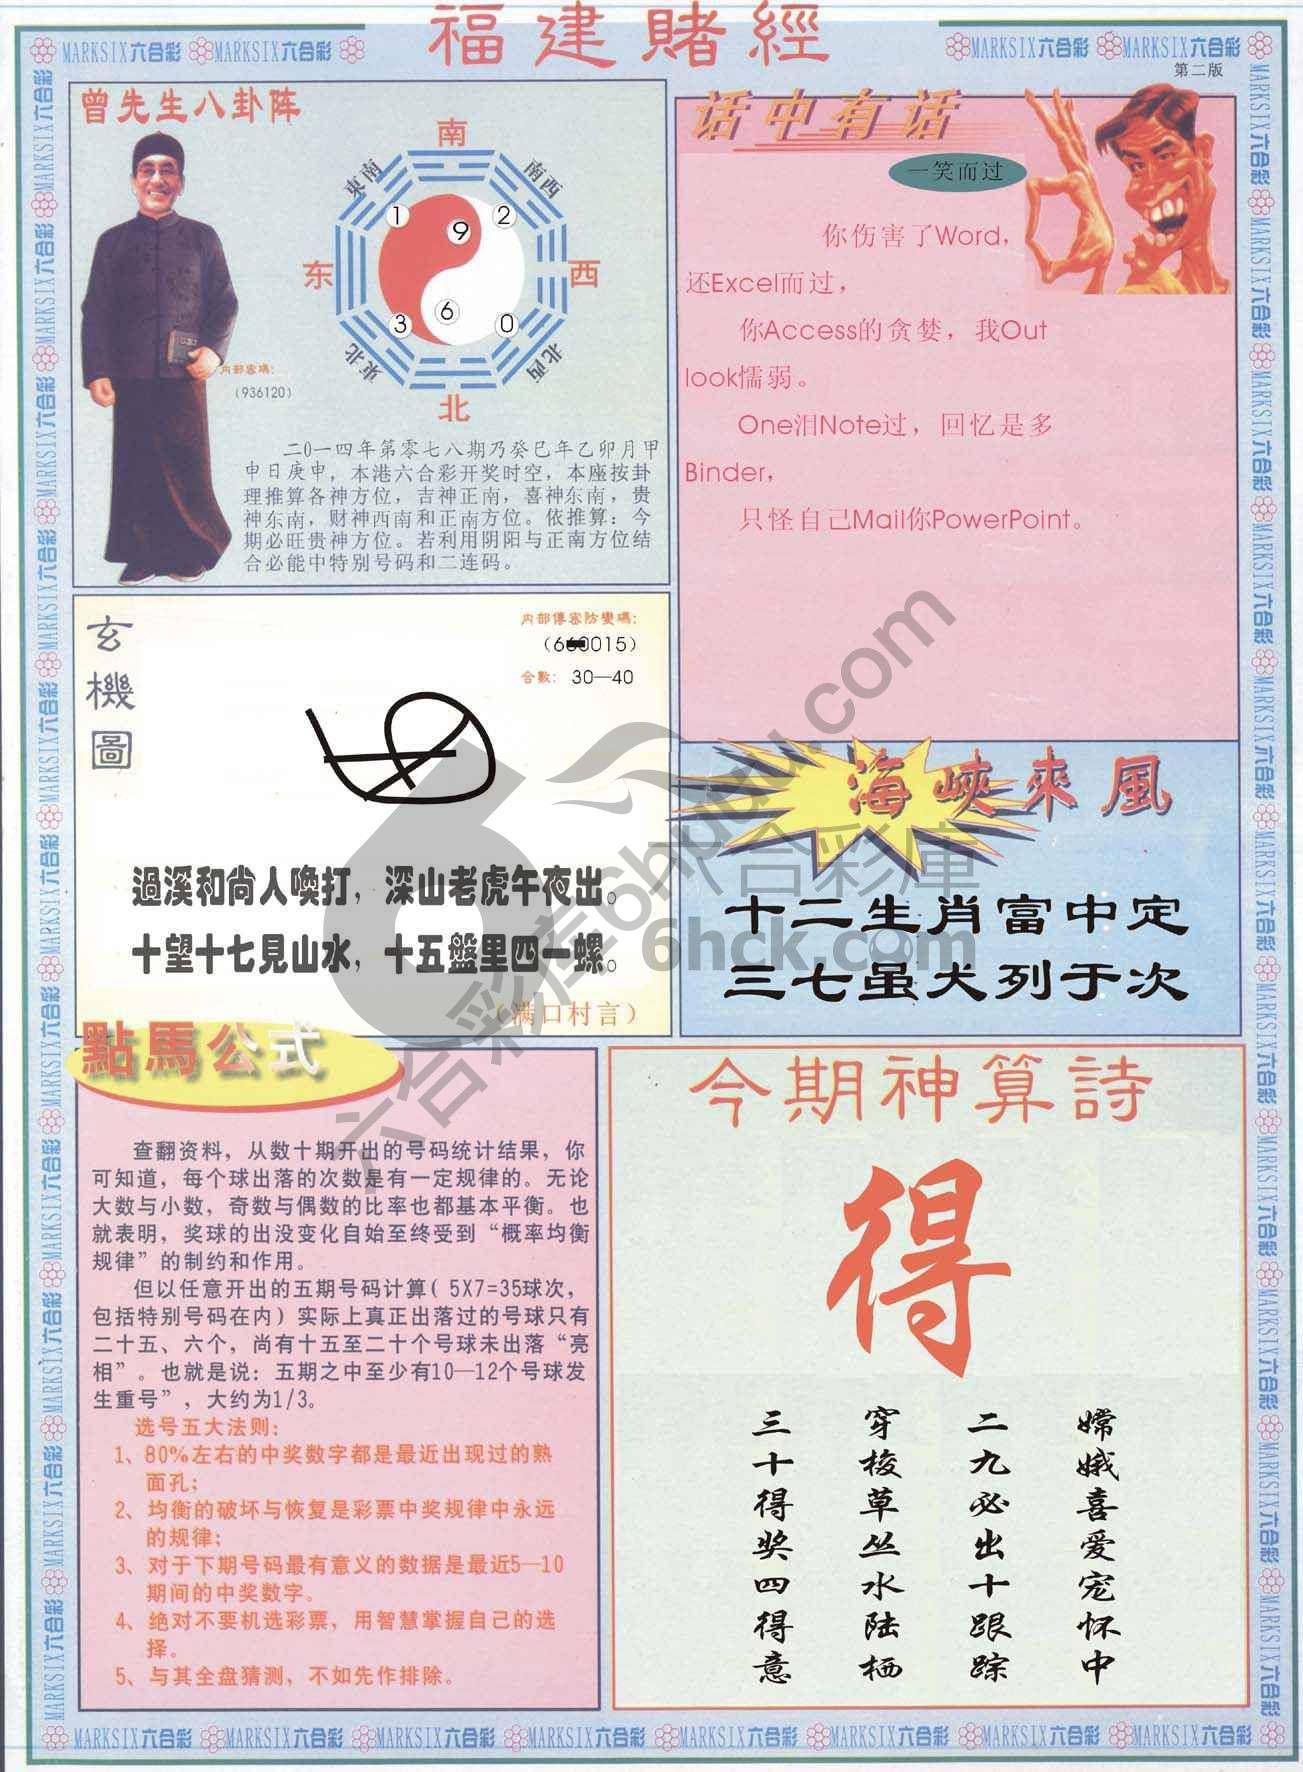 福建賭經
MARKSIX六合彩 MARKSIX六合彩
MARKSIX六合彩 MARKSIX六合彩
第二版
曾先生八卦阵
南
東南
南西
1
9
2
东
西
3
6
0
東北
北西
北
内部密碼：
（936120）
二0一四年第零七八期乃癸巳年乙卯月甲
申日庚申，本港六合彩开奖时空，本座按卦
理推算各神方位，吉神正南，喜神东南，贵
神东南，财神西南和正南方位。依推算：今
期必旺贵神方位。若利用阴阳与正南方位结
合必能中特别号码和二连码。
话中有话
一笑而过
你伤害了Word，
还Excel而过，
你Access的贪婪，我Out
look懦弱。
One泪Note过，回忆是多
Binder，
只怪自己Mail你PowerPoint。
玄機圖
内部傳密防變碼：
合數： 30—40
過溪和尚人喚打，深山老虎午夜出。
十望十七見山水，十五盤里四一螺。
（满口村言）
海峽來風
十二生肖富中定
三七虽犬列于次
點馬公式
查翻资料，从数十期开出的号码统计结果，你
可知道，每个球出落的次数是有一定规律的。无论
大数与小数，奇数与偶数的比率也都基本平衡。也
就表明，奖球的出没变化自始至终受到“概率均衡
规律”的制约和作用。
但以任意开出的五期号码计算（5X7=35球次，
包括特别号码在内）实际上真正出落过的号球只有
二十五、六个，尚有十五至二十个号球未出落“亮
相”。也就是说：五期之中至少有10—12个号球发
生重号”，大约为1/3。
选号五大法则：
1、80%左右的中奖数字都是最近出现过的熟
面孔；
2、均衡的破坏与恢复是彩票中奖规律中永远
的规律；
3、对于下期号码最有意义的数据是最近5—10
期间的中奖数字。
4、绝对不要机选彩票，用智慧掌握自己的选
择。
5、与其全盘猜测，不如先作排除。
今期神算詩
得
嫦娥喜爱宠怀中
二九必出十跟踪
穿梭草丛水陆栖
三十得奖四得意
六合彩库6hpudu.com
六合彩庫
6hck.com
MARKSIX六合彩 MARKSIX六合彩 MARKSIX六合彩 MARKSIX六合彩 MARKSIX六合彩 MARKSIX六合彩 MARKSIX六合彩 MARKSIX六合彩